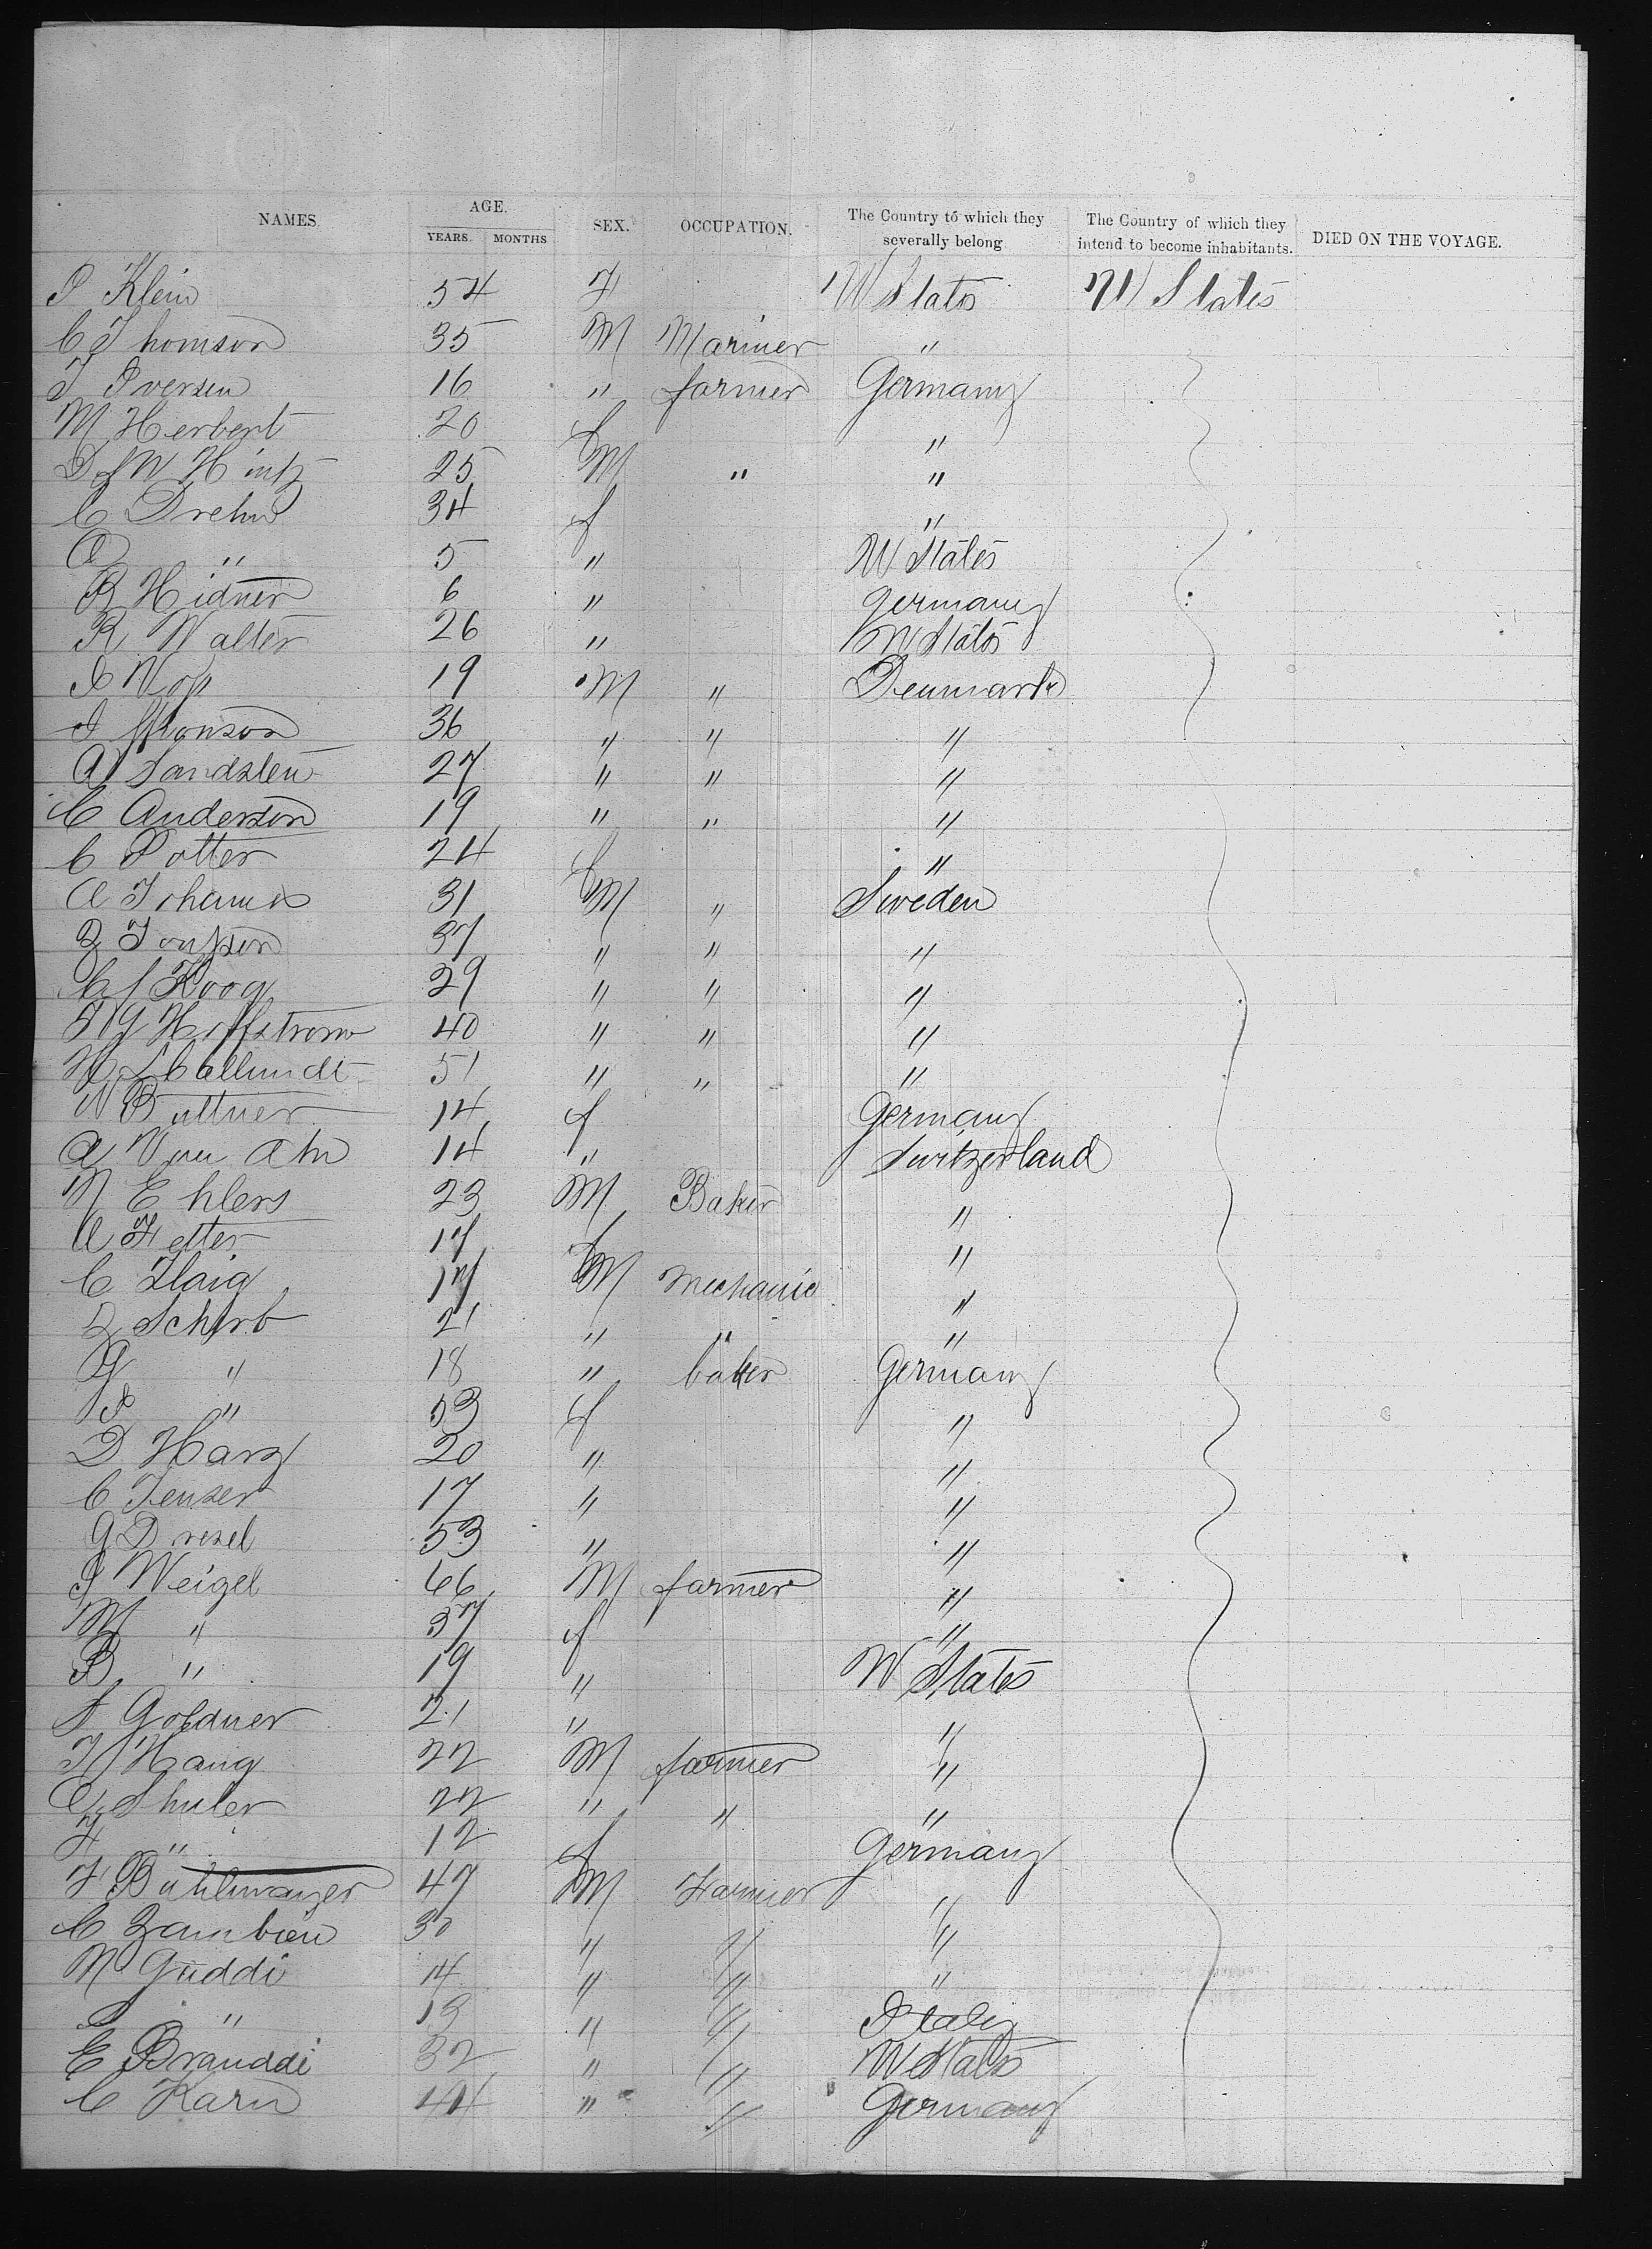 NAMES. AGE. SEX. OCCUPATION. The Country to which they severally belong The Country of which they intend to become inhabitants. DIED ON THE VOYAGE.
YEARS. MONTHS
P Klein 54 F U States U States
C Thomson 35 M Mariner "
J Iversen 16 " farmer Germany
M Herbert 20 f "
D f W Hintz 25 M " "
C Drehn 34 f "
A " 5 " U States
B Hidner 6 " Germany
R Walter 26 " U States
19 M " Denmark
I Monson 36 " " "
A Sandsten 27 " " "
C Anderson 19 " " "
C Potter 24 f "
A 31 M " Sweden
37 " " "
C f Koog 29 " " "
Hoffstrom 40 " " "
51 " " "
W Buttner 14 f Germany
A Von Ahn 14 " Switzerland
M Ehlers 23 M Baker "
A Fetter 17 f "
C Haig 17 M Mechanic "
21 " " "
18 " baker Germany
P " 53 f "
D Harz 20 " "
C Jenser 17 " "
G Dresel 53 " "
J Weigel 66 M farmer "
M " 37 f "
B " 19 " U States
A Goldner 21 " "
22 M farmer "
C Shuler 22 " " "
F " 12 f Germany
F 47 M Farmer "
C Zambien 30 " " "
M Guddi 14 " " "
" 13 " " Italy
E Branddi 32 " " U States
C Karn 44 " " Germany